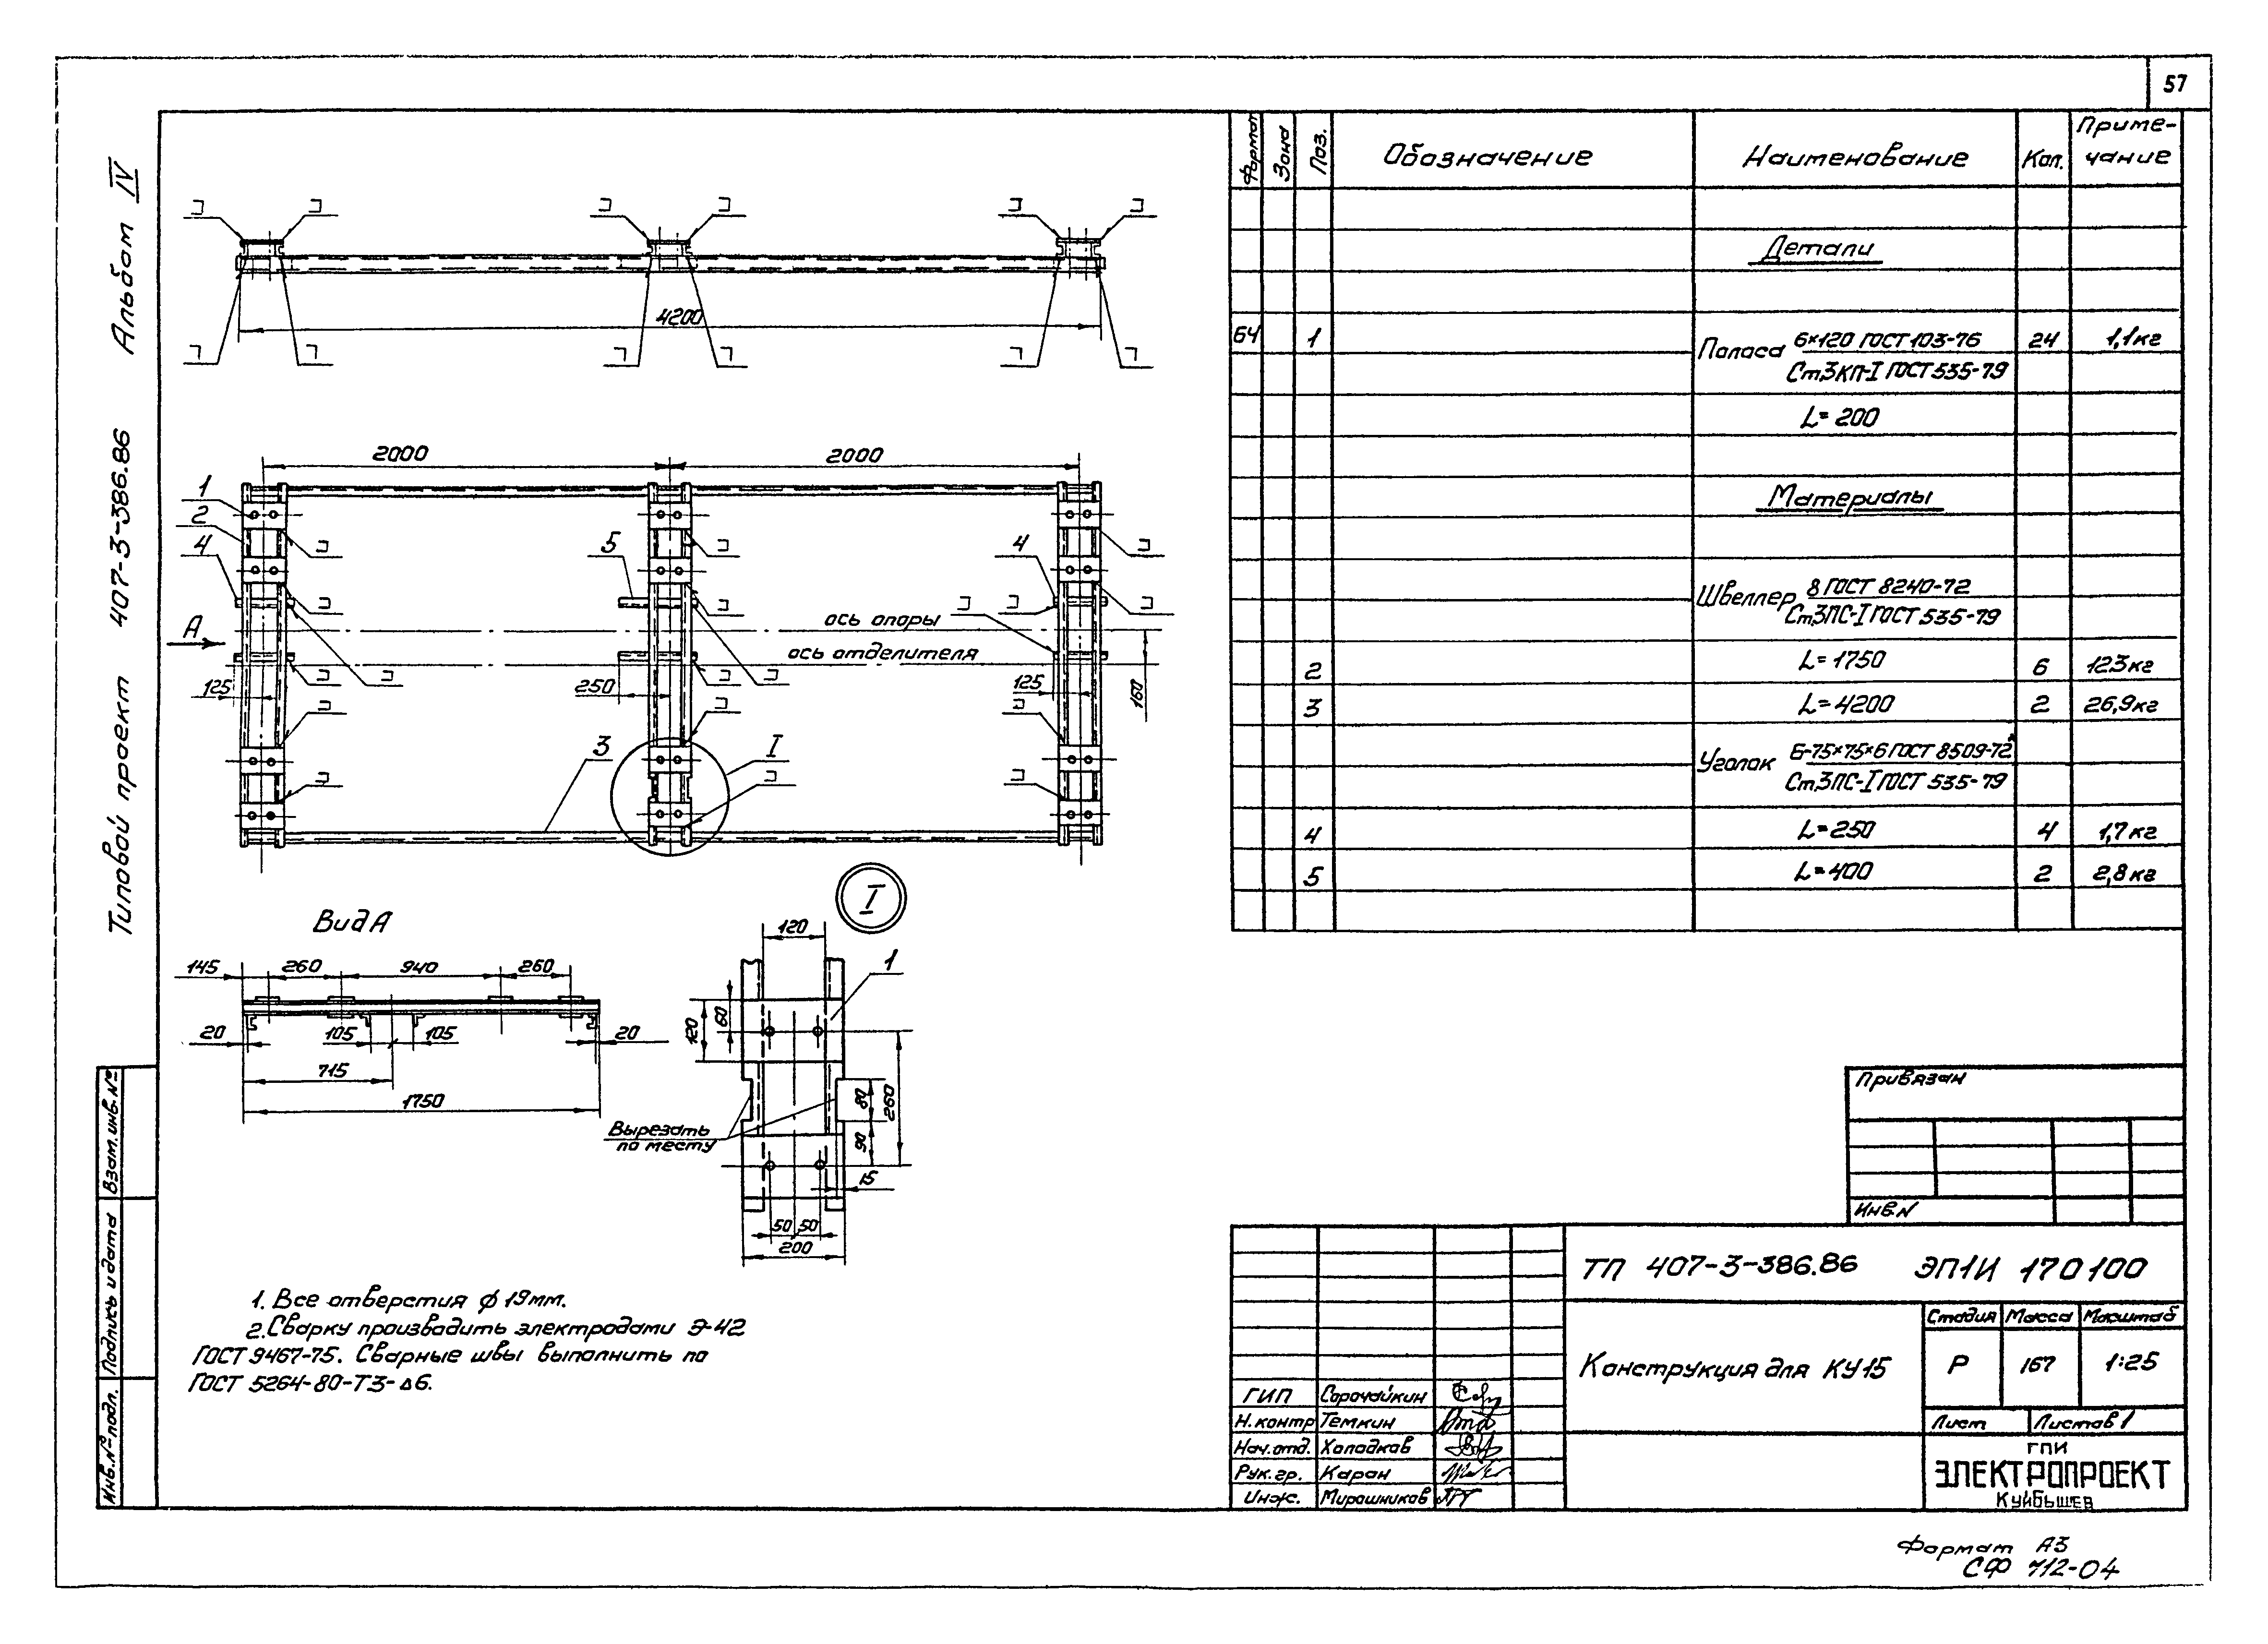 57
Типовой проект 407-3-386.86 Альбом IV
4200
2000 2000
1
2
4
5
4
А
ось опоры
ось отделителя
125
250
125
160
3
I
Вид А
145 260 940 260
20 105 105 20
715
1750
I
120
1
60
120
80
260
90
15
Вырезать
по месту
50 50
200
1. Все отверстия ф 19мм.
2. Сварку производить электродами Э-42
ГОСТ 9467-75. Сварные швы выполнить по
ГОСТ 5264-80-Т3-⊿6.
Формат Зона Поз. Обозначение Наименование Кол. Приме-
чание
Детали
БЧ 1 Полоса 6×120 ГОСТ 103-76 24 1,1кг
Ст.3КП-I ГОСТ 535-79
L=200
Материалы
Швеллер 8 ГОСТ 8240-72
Ст.3ПС-I ГОСТ 535-79
2 L=1750 6 12,3кг
3 L=4200 2 26,9кг
Уголок Б-75×75×6 ГОСТ 8509-72
Ст.3ПС-I ГОСТ 535-79
4 L=250 4 1,7кг
5 L=400 2 2,8кг
Привязан
Инв.N
ТП 407-3-386.86 ЭП1И 170100
Конструкция для КУ15
Стадия Масса Масштаб
Р 167 1:25
Лист Листов 1
ГПИ
ЭЛЕКТРОПРОЕКТ
Куйбышев
ГИП Сорочайкин
Н.контр Темкин
Нач.отд. Холодков
Рук.гр. Каран
Инж. Мирошников
Инв.№ подл. Подпись и дата Взам.инв.№
Формат А3
СФ 712-04